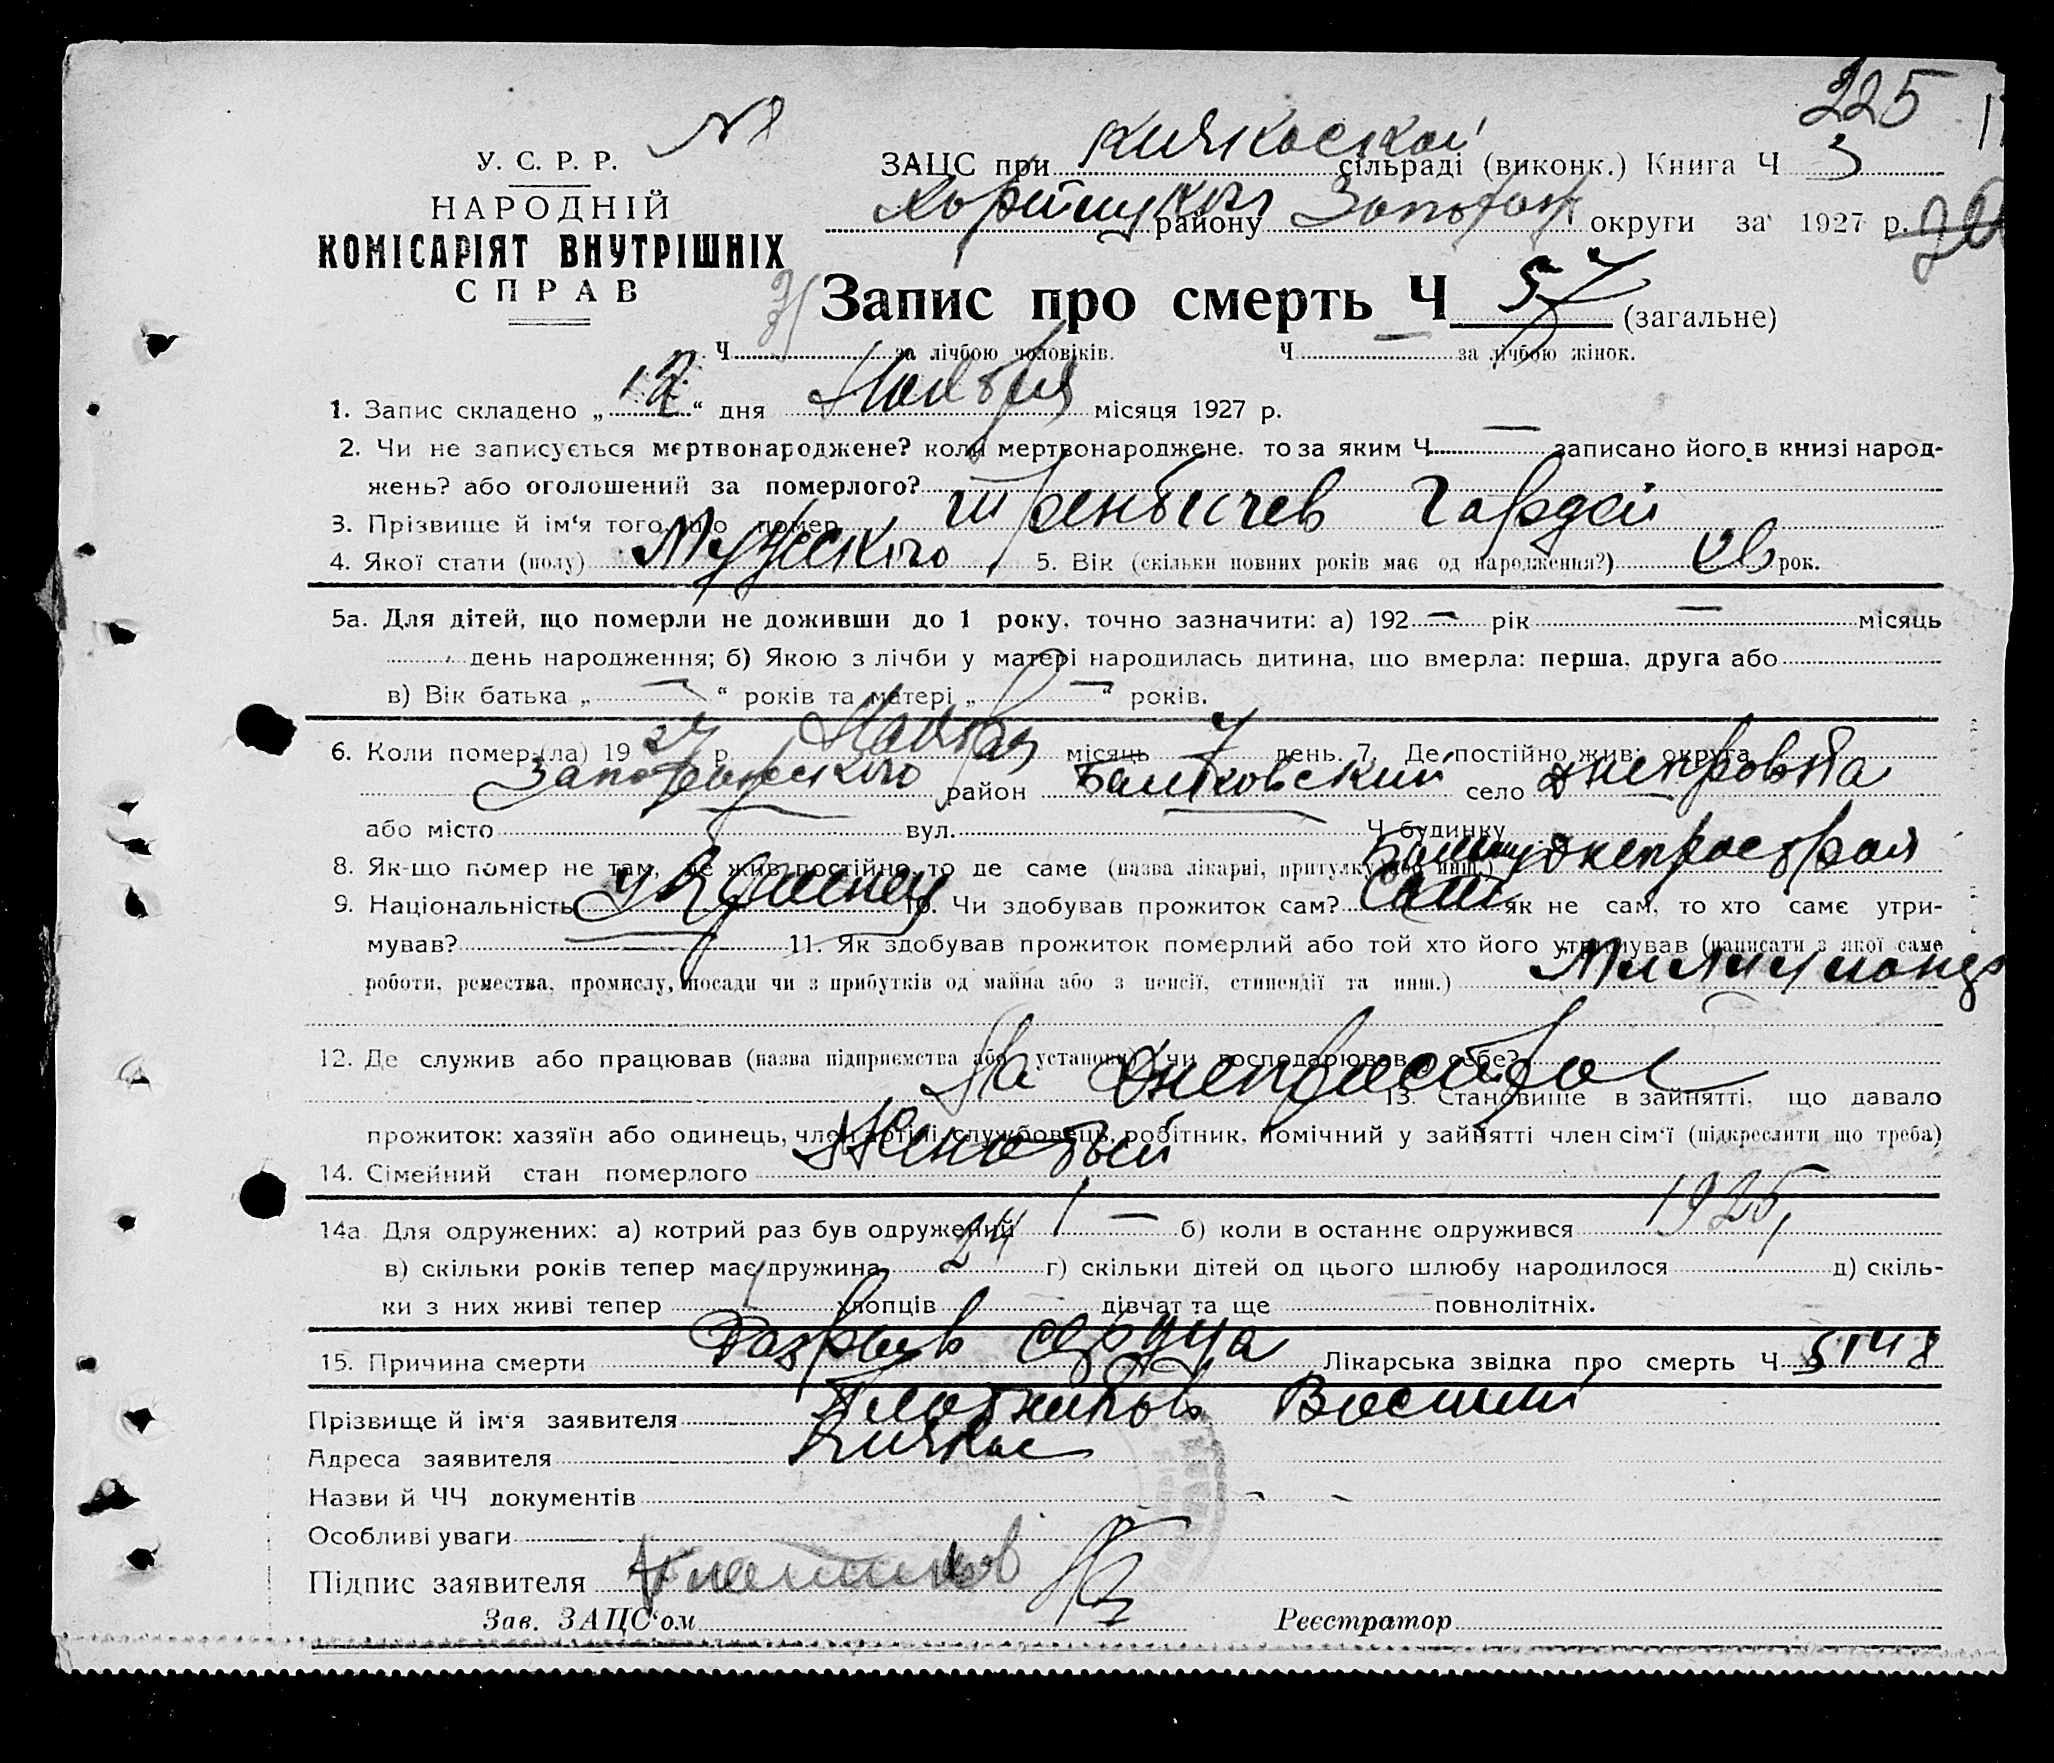 225
№
У. С. Р. Р.
НАРОДНІЙ
КОМІСАРІЯТ ВНУТРІШНІХ
СПРАВ
ЗАЦС при Кичкаской сільраді (виконк.) Книга Ч 3
району Запорож округи за 1927 р.
Запис про смерть Ч 57 (загальне)
Ч за лічбою чоловіків. Ч за лічбою жінок.
1. Запис складено „ 12 “ дня Ноября місяця 1927 р.
2. Чи не записується мертвонароджене? коли мертвонароджене, то за яким Ч — записано його в книзі народ-
жень? або оголошений за померлого?
3. Прізвище й ім‘я того, що помер Гордей
4. Якої стати (полу) Мужского 5. Вік (скільки повних років має од народження?) рок.
5а. Для дітей, що померли не доживши до 1 року, точно зазначити: а) 192 — рік — місяць
день народження; б) Якою з лічби у матері народилась дитина, що вмерла: перша, друга або
в) Вік батька „ — “ років та матері „ — “ років.
6. Коли помер (ла) 19 27 р. Ноября місяць 7 день. 7. Де постійно жив: округа
Запорожского район село
або місто вул. Ч будинку
8. Як-що помер не там, де жив постійно, то де саме (назва лікарні, притулку або инш.) Днепростроя
9. Національність Украинец 10. Чи здобував прожиток сам? Сам як не сам, то хто саме утри-
мував? 11. Як здобував прожиток померлий або той хто його утримував (написати з якої саме
роботи, ремества, промислу, посади чи з прибутків од майна або з пенсії, стипендії та инш.) Милиционер
12. Де служив або працював (назва підприємства або установи) чи господарював у себе?
На Днепрострое 13. Становище в зайнятті, що давало
прожиток: хазяїн або одинець, член артілі, службовець, робітник, помічний у зайнятті член сім‘ї (підкреслити що треба)
14. Сімейний стан померлого Женатый
14а. Для одружених: а) котрий раз був одружений 1 — б) коли в останнє одружився 1925
в) скільки років тепер має дружина 24 г) скільки дітей од цього шлюбу народилося д) скіль-
ки з них живі тепер 1 хлопців дівчат та ще повнолітніх.
15. Причина смерти Разрыв сердца Лікарська звідка про смерть Ч 5148
Прізвище й ім‘я заявителя Плотников
Адреса заявителя Кичкас
Назви й ЧЧ документів
Особливі уваги
Підпис заявителя
Зав. ЗАЦС‘ом Реєстратор